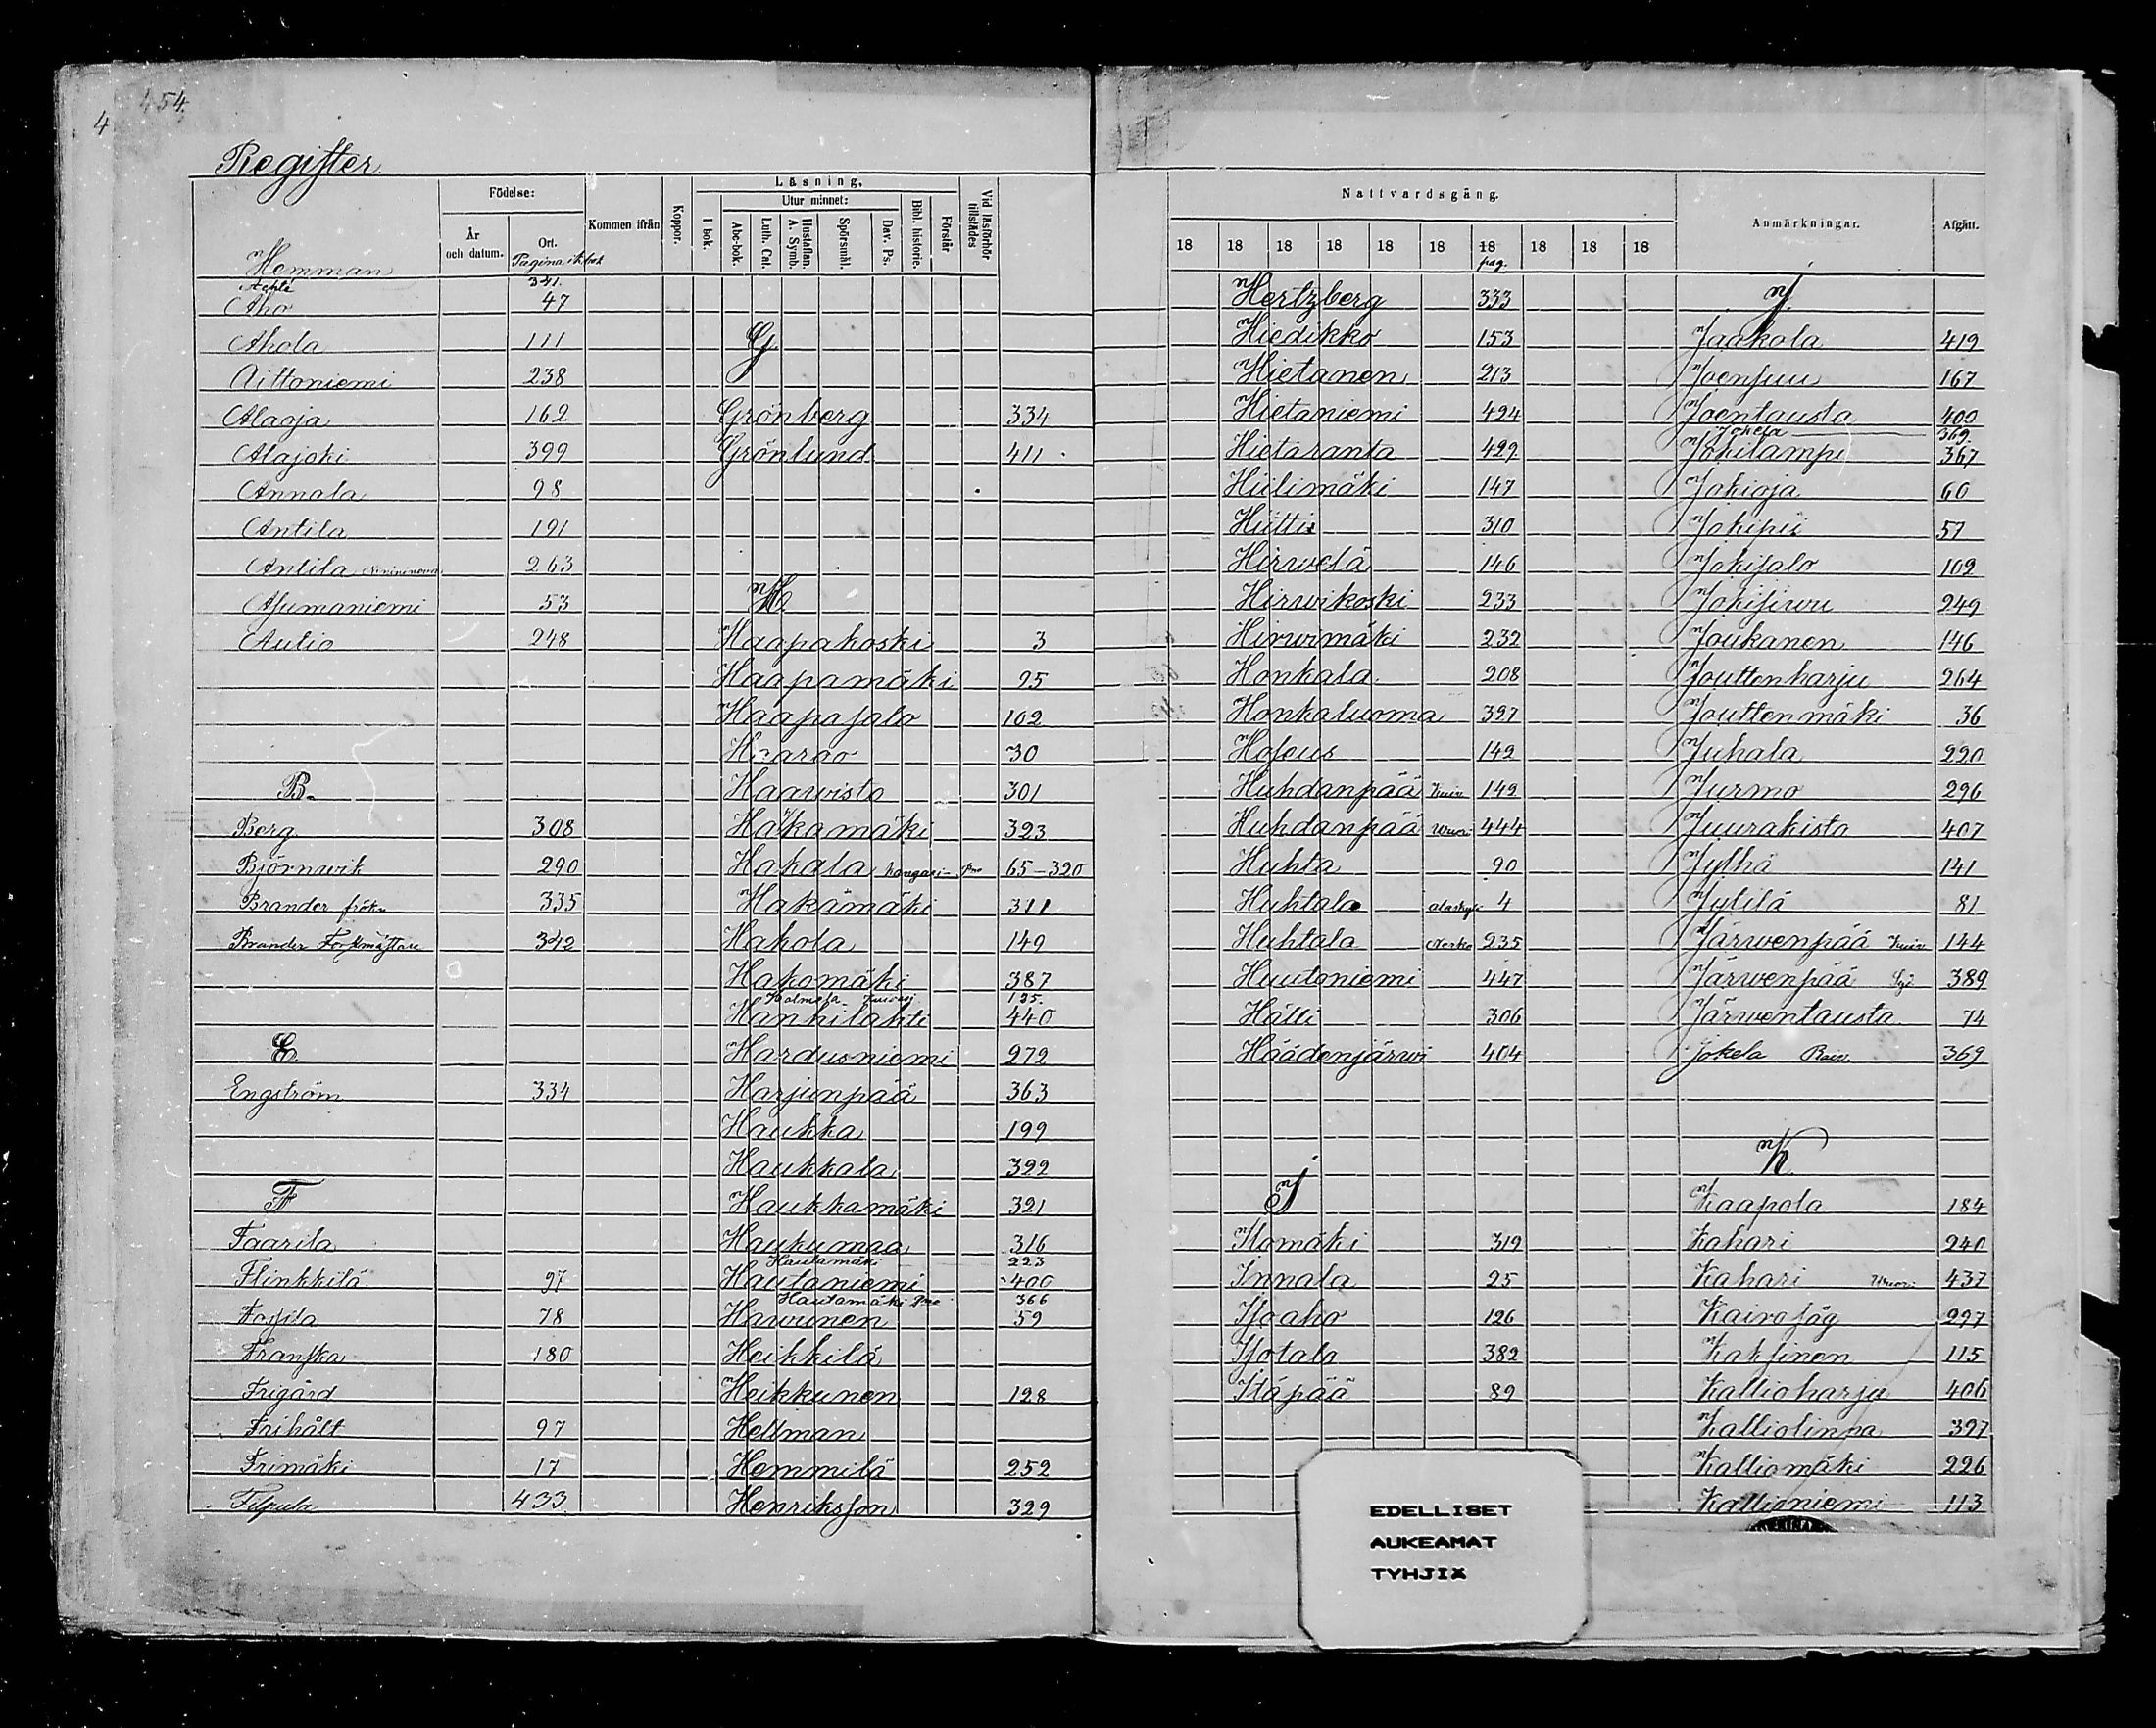 454.
4
Register
Födelse:
År och datum.
Ort.
Kommen ifrån
Koppor.
Läsning.
I bok.
Utur minnet:
Abc-bok.
Luth. Cat.
Hustaflan. A. Symb.
Spörsmål.
Dav. Ps.
Bibl. historie.
Förstår
Vid läsförhör tillstädes
Hemman
Pagina i k.bok
Achté 341.
Aho 47
Ahola 111
Aittoniemi 238
Alaoja 162
Alajoki 399
Annala 98
Antila 191
Antila 263
Asumaniemi 53
Autio 248
B.
Berg 308
Björnwik 290
Brander frök. 335
Brander Forstmästare 342
E.
Engström 334
F
Faarila
Flinkkilä 97
Fossila 78
Franska 180
Frigård
Frihålt 97
Frimäki 17
Filpula 433
G.
Grönberg 334
Grönlund 411
H
Haapakoski 3
Haapamäki 95
Haapasalo 102
Haarao 30
Haawisto 301
Hakamäki 323
Hakala 65-320
Hakamäki 311
Hakola 149
Hakomäki 387
Holmola 125.
Hanhilahti 440
Hardusniemi 272
Harjunpää 363
Haukka 199
Haukkala 322
Haukkamäki 321
Haukumaa 316
Hautamäki 223
Hautaniemi 400
Hautamäki 366
Hawunen 59
Heikkilä
Heikkunen 128
Hellman
Hemmilä 252
Henriksson 329
Nattvardsgång.
Anmärkningar.
Afgått.
18 18 18 18 18 18 18 18 18 18
pag.
Hertzberg 333
Hiedikko 153
Hietanen 213
Hietaniemi 424
Hietaranta 429
Hiilimäki 147
Hiitti 310
Hirwelä 146
Hirwikoski 233
Hirwimäki 232
Honkala 208
Honkaluoma 397
Hoseus 142
Huhdanpää 142
Huhdanpää 444
Huhta 90
Huhtala 4
Huhtala 235
Huutoniemi 447
Hälli 306
Häädenjärwi 404
I
Ilomäki 319
Innala 25
Isoaho 126
Isotalo 382
Itäpää 89
J.
Jaakola 419
Joensuu 167
Joentausta 409
Jokela 369.
Jokilampi 367
Jokioja 60
Jokipii 57
Jokisalo 109
Jokisiwu 249
Joukanen 146
Jouttenharju 264
Jouttenmäki 36
Juhala 220
Jurmo 296
Juurakisto 407
Jylhä 141
Jytilä 81
Järwenpää 144
Järwenpää 389
Järwentausta 74
Jokela 369
K
Kaapola 184
Kahari 240
Kahari 437
Kairasåg 297
Kaksinen 115
Kallioharju 406
Kalliolinna 397
Kalliomäki 226
Kallioniemi 113
EDELLISET
AUKEAMAT
TYHJIX